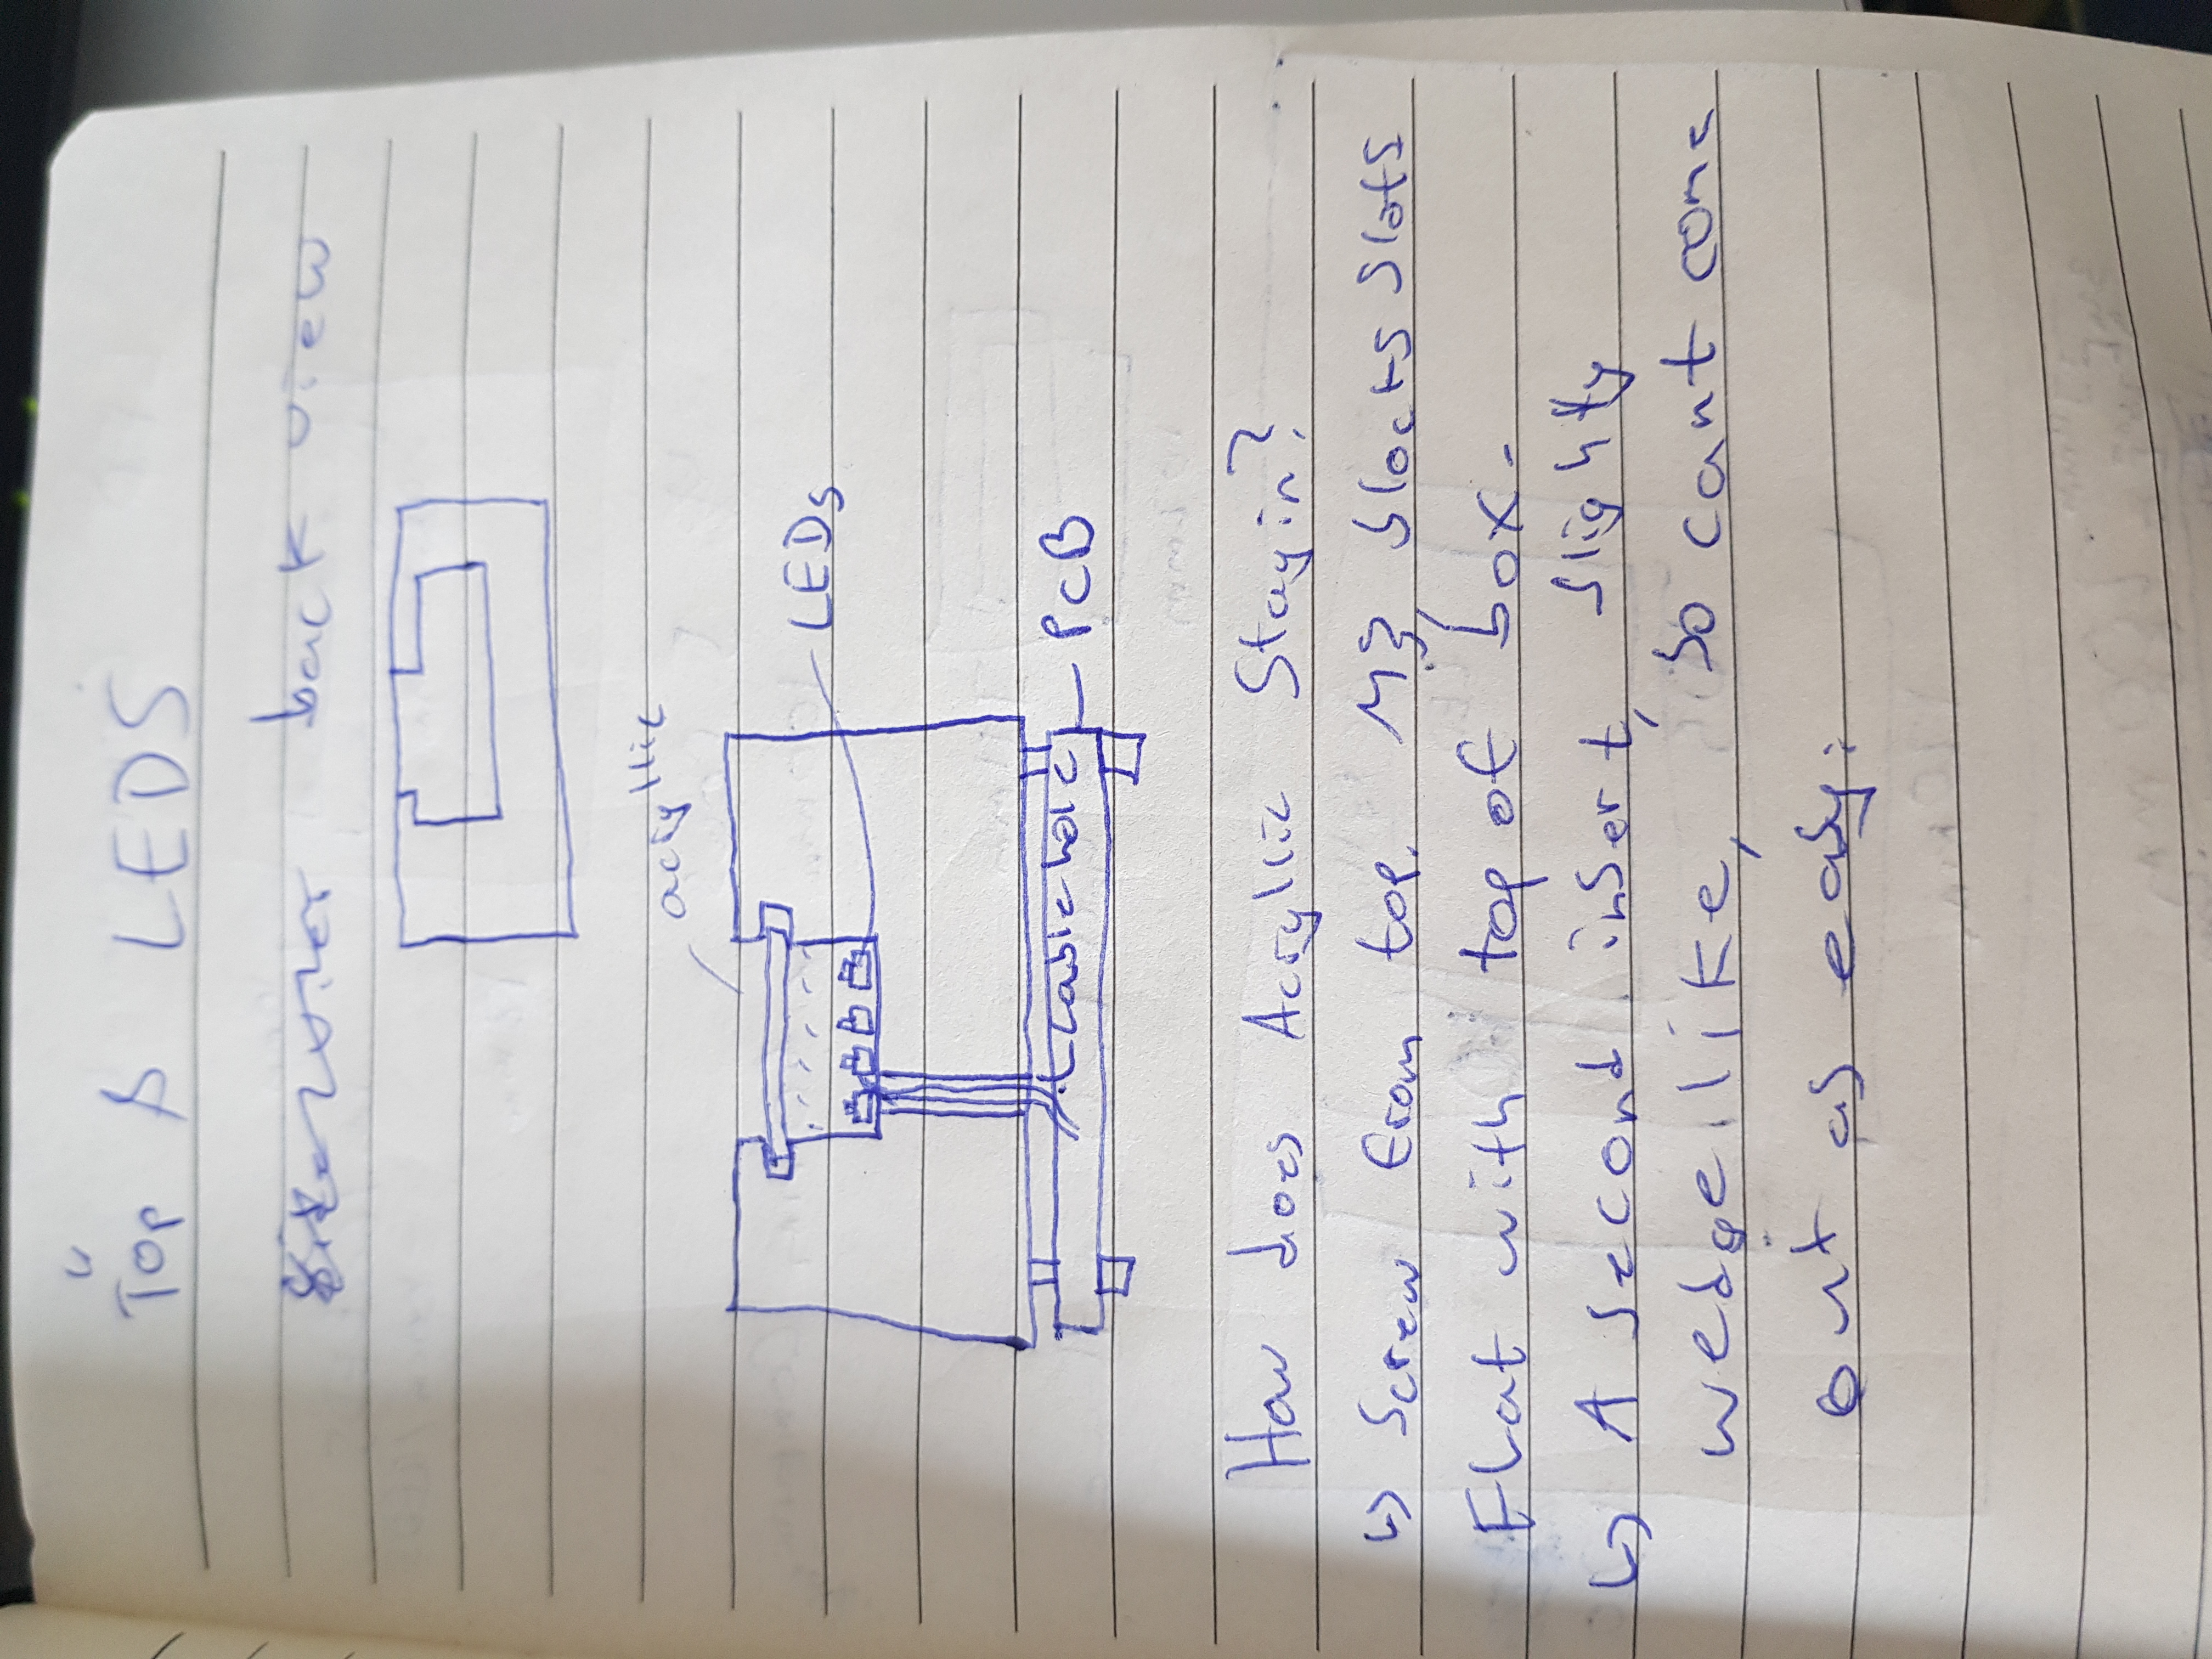 Top & LEDS
back view
acryllic
LEDs
cable hole
PCB
How does Acryllic Stay in?
↳ Screw from top. M3, blocks slots
Flat with top of box.
↳ A second insert, slightly
wedge like, so cant come
out as easy.